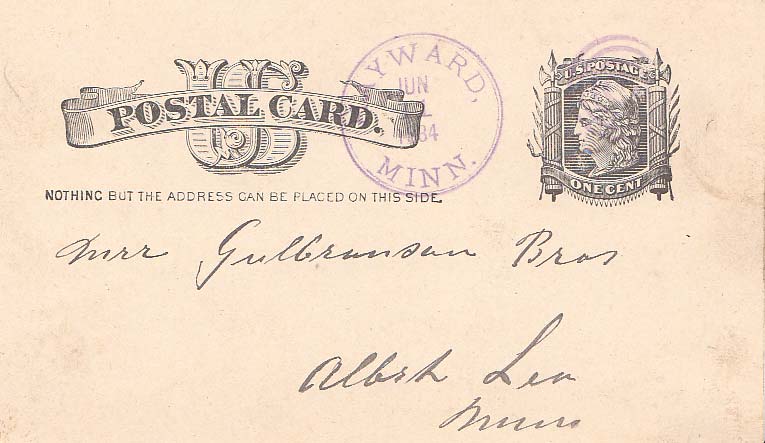 US
POSTAL CARD.
NOTHING BUT THE ADDRESS CAN BE PLACED ON THIS SIDE.
YWARD,
JUN
84
MINN.
U.S. POSTAGE
ONE CENT
Gulbranson Bros
Albert Lea
Minn